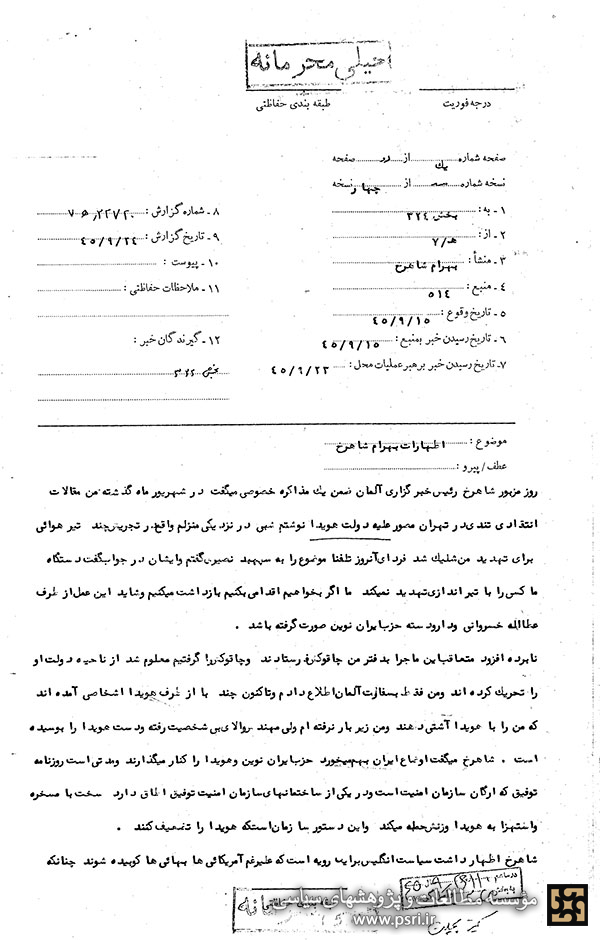 خیلی محرمانه
درجه فوریت
طبقه بندی حفاظتی
صفحه شماره یک از دو صفحه
نسخه شماره از چهار نسخه
۱ ـ به : بخش ۳۲۴
۲ ـ از : ۷/هـ
۳ ـ منشأ : بهرام شاهرخ
۴ ـ منبع : ۵۱۴
۵ ـ تاریخ وقوع : ۴۵/۹/۱۵
۶ ـ تاریخ رسیدن خبر بمنبع : ۴۵/۹/۱۵
۷ ـ تاریخ رسیدن خبر برهبر عملیات محل : ۴۵/۹/۲۳
۸ ـ شماره گزارش :
۹ ـ تاریخ گزارش : ۴۵/۹/۲۴
۱۰ ـ پیوست :
۱۱ ـ ملاحظات حفاظتی :
۱۲ ـ گیرندگان خبر :
بخش ۳۲۲
موضوع : اظهارات بهرام شاهرخ
عطف/پیرو :
روز مزبور شاهرخ رئیس خبرگزاری آلمان ضمن یک مذاکره خصوصی میگفت در شهریور ماه گذشته من مقالات
انتقادی تندی در تهران مصور علیه دولت هویدا نوشتم شبی در نزدیکی منزلم واقع در تجریش چند تیر هوائی
برای تهدید من شلیک شد فردای آنروز تلفنا موضوع را به سپهبد نصیری گفتم وایشان در جواب گفت دستگاه
ما کسی را با تیراندازی تهدید نمیکند ما اگر بخواهیم اقدامی بکنیم بازداشت میکنیم وشاید این عمل از طرف
عطاالله خسروانی ودارودسته حزب ایران نوین صورت گرفته باشد .
نابرده افزود متعاقب این ماجرا بدفتر من چاقوکش فرستادند وچاقوکش را گرفتیم معلوم شد از ناحیه دولت او
را تحریک کرده اند ومن فقط بسفارت آلمان اطلاع دادم وتاکنون چند بار از طرف هویدا اشخاصی آمده اند
که من را با هویدا آشتی دهند ومن زیر بار نرفته ام ولی مهندس والا بی شخصیت رفته ودست هویدا را بوسیده
است . شاهرخ میگفت اوضاع ایران بهم میخورد حزب ایران نوین وهویدا را کنار میگذارند ومدتی است روزنامه
توفیق که ارگان سازمان امنیت است ودر یکی از ساختمانهای سازمان امنیت توفیق اطاق دارد سخت با مسخره
واستهزا به هویدا وزنش حمله میکند واین دستور سازمان استکه هویدا را تضعیف کنند .
شاهرخ اظهار داشت سیاست انگلیس براینه رویه است که علیرغم آمریکائی ها بهائی ها کوبیده شوند چنانکه
مؤسسه مطالعات و پژوهشهای سیاسی
www.psri.ir